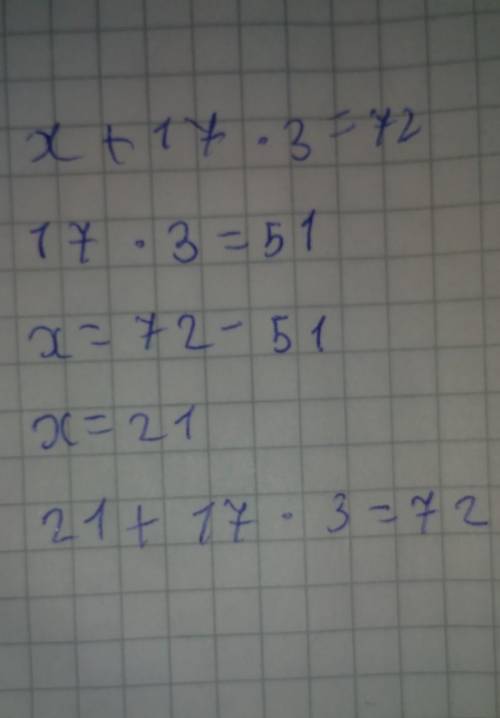 x + 17 · 3 = 72
17 · 3 = 51
x = 72 - 51
x = 21
21 + 17 · 3 = 72